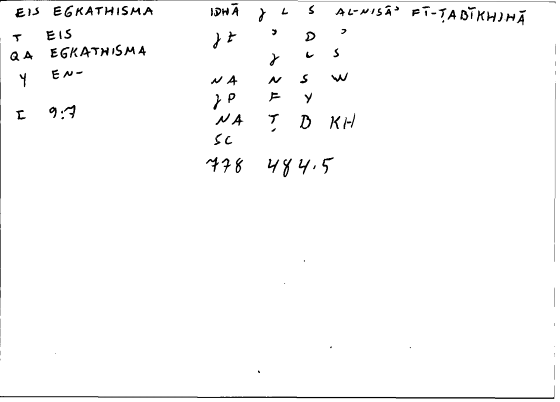 EIS EGKATHISMA IDHĀ J L S AL-NISĀʾ FĪ-ṬABĪKHIHĀ
T EIS Jt ʾ D ʾ
QA EGKATHISMA J L S
Y EN- NA N S W
JP F Y
I 9:7 NA Ṭ B KH
SC
778 484.5